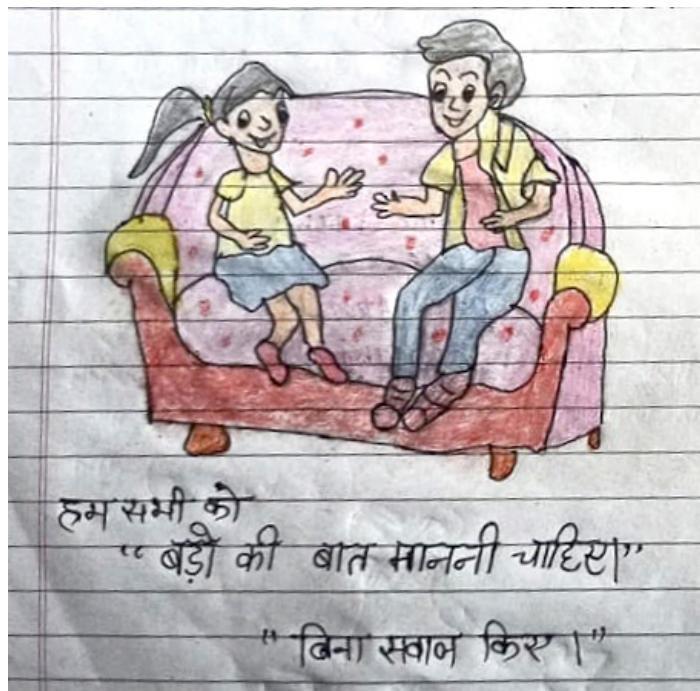 हम सभी को
“ बड़ों की बात माननी चाहिए।”
“ बिना सवाल किए ।”